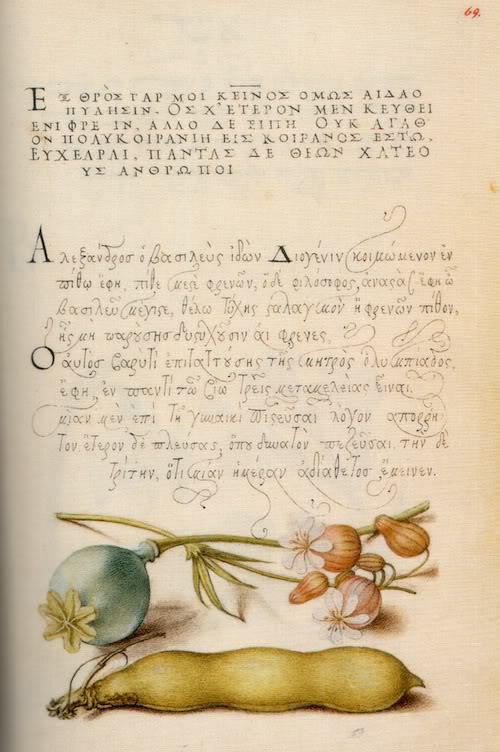 69.
ΕΞ ΘΡῸΣ ΓᾺΡ ΜΟΙ ΚΕΙΝΟΣ ΟΜΩΣ ΑΙΔΑΟ
ΠΥΛΗΣΙΝ. ΟΣ Χ' ΕΤΕΡΟΝ ΜΕΝ ΚΕΥΘΕΙ
ΕΝΙ ΦΡΕ ΙΝ, ΑΛΛΟ ΔΕ ΕΙΠΗ ΟΥΚ ΑΓΑΘ
ΟΝ ΠΟΛΥΚΟΙΡΑΝΙΗ ΕΙΣ ΚΟΙΡΑΝΟΣ ΕΣΤΩ.
ΠΑΝΤΑΣ ΔΕ ΘΕΩΝ ΧΑΤΕΟ
ΥΣ ΑΝΘΡΩΠΟΙ
Αλεξάνδρος ὁ βασιλεὺς ἰδὼν Διογένιν κοιμώμενον ἐν
πίθω ἔφη, πίθε μεςὲ φρενῶν, ὁδὲ φιλόσοφος, ἀναςὰς ἔφη ὦ
βασιλεῦ μέγιςε, θέλω τύχης ςαλαγμὸν ἢ φρενῶν πίθον,
ἧς μὴ παρύσης δυςυχῦσιν ἁι φρενες.
Ὁ ἀυτὸς ἐπὶ τῆς μητρὸς ὀλυμπιαδος,
ἔφη, ἐν παντὶ τῶ βίω τρεῖς μεταμελειας εἶναι.
μίαν μὲν ἐπὶ τῆ γυναικὶ πιςεῦσαι λόγον ἀπορρη
τον. ἕτερον δὲ πλεῦσας, ὁπου δυνατὸν πεζεῦσαι. τὴν δὲ
τρίτην, ὅτι μίαν ἡμέραν ἀδιάθετος ἔμεινεν.